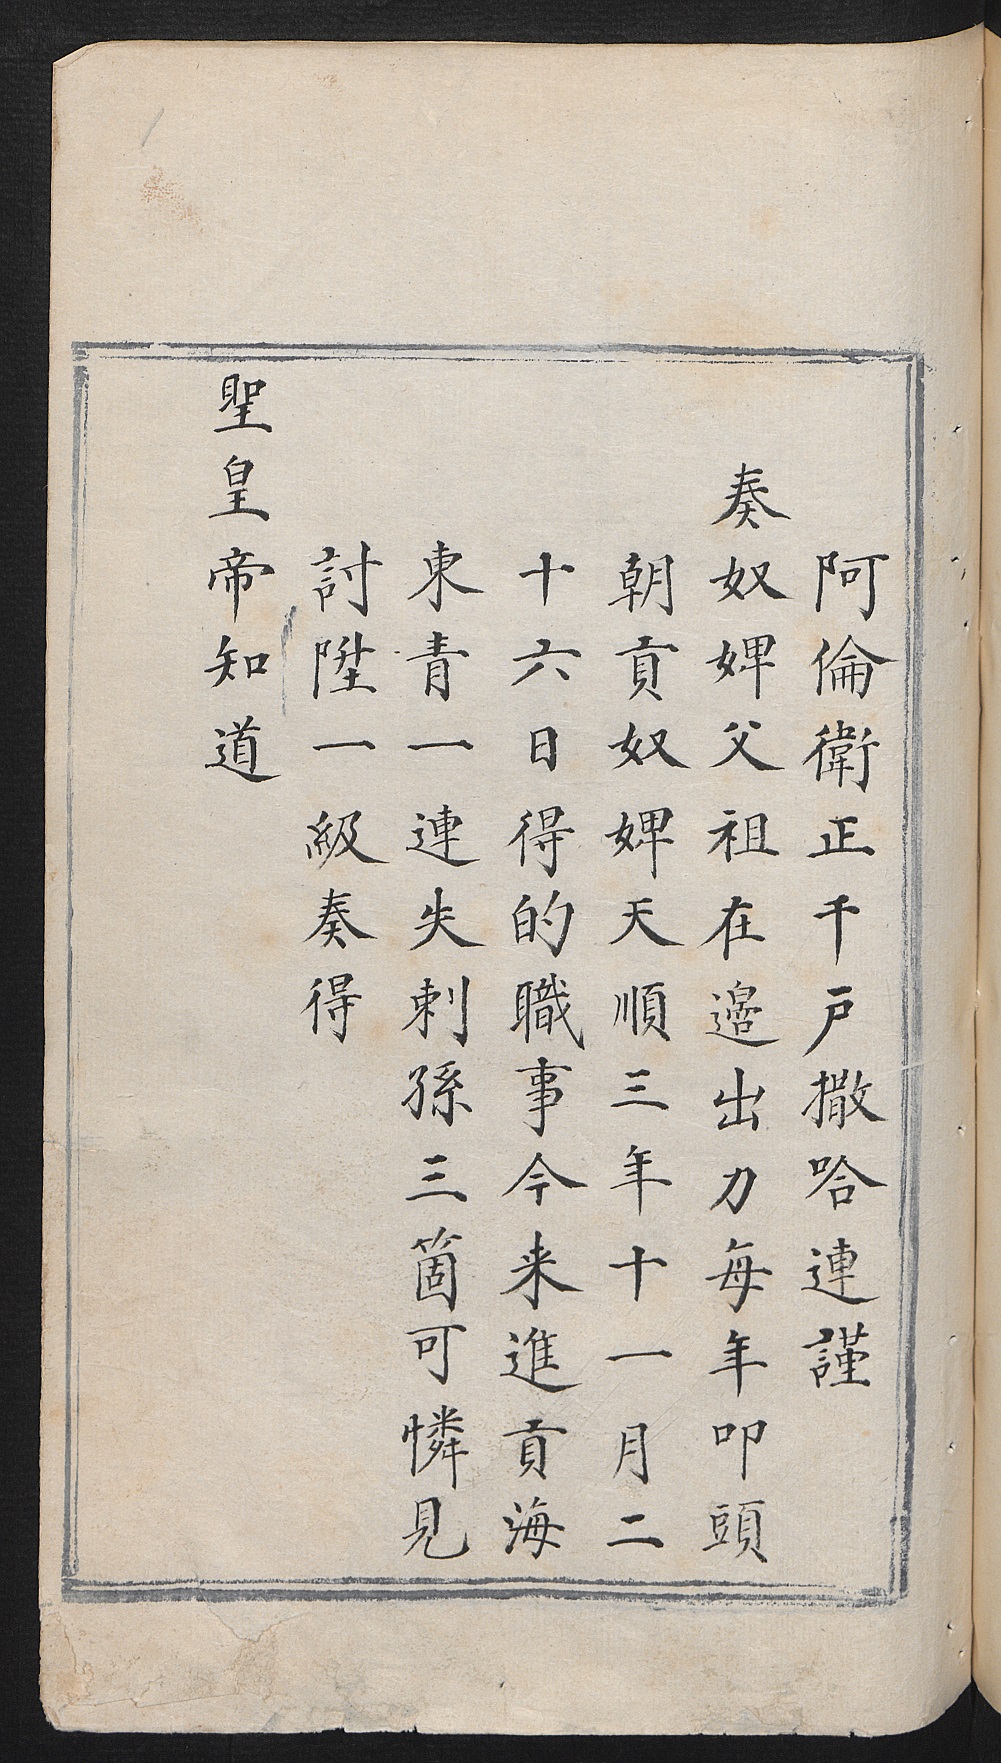 阿倫衛正千戸撒哈連謹
奏奴婢父祖在邉出力每年叩頭
朝貢奴婢天順三年十一月二
十六日得的職事今来進貢海
東青一連失剌孫三箇可憐見
討陞一級奏得
聖皇帝知道